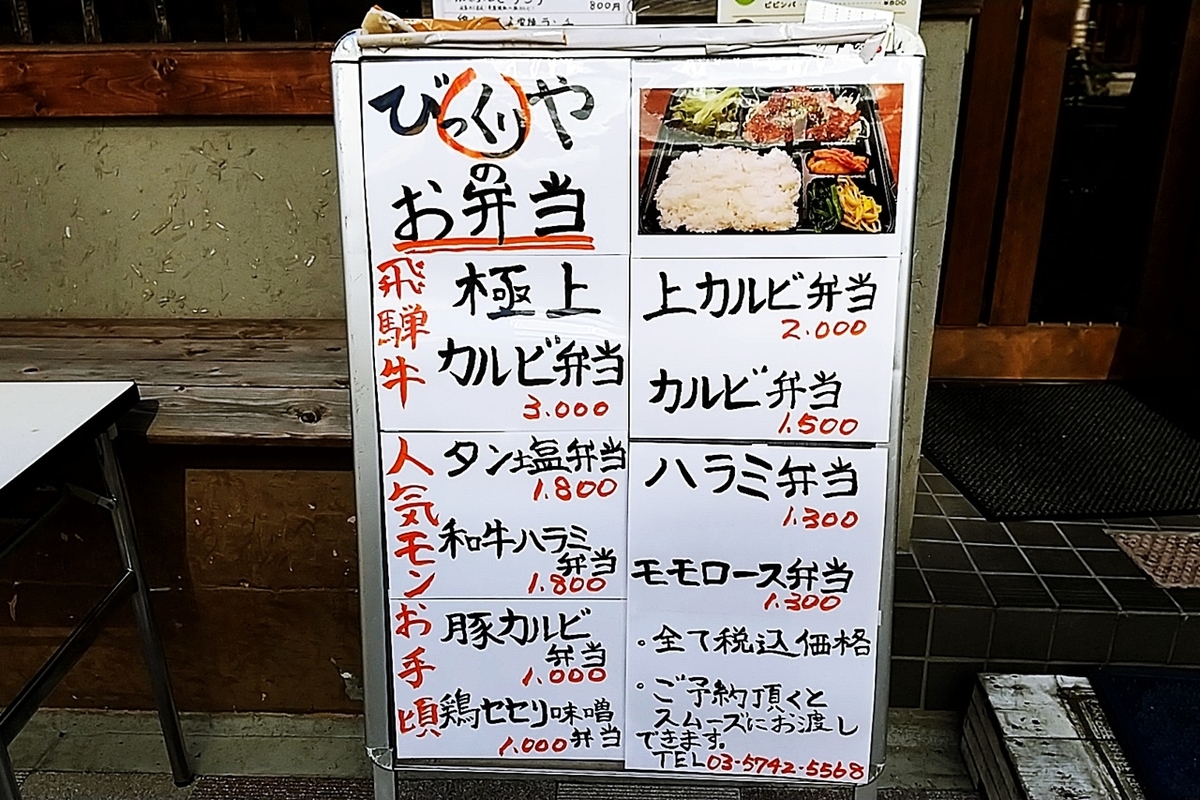 800円
ビビンバ
¥800
びっくりや
の
お弁当
飛騨牛
極上
カルビ弁当
3.000
上カルビ弁当
2.000
カルビ弁当
1.500
人気モン
タン塩弁当
1.800
和牛ハラミ
弁当
1.800
ハラミ弁当
1.300
モモロース弁当
1.300
お手頃
豚カルビ
弁当
1.000
鶏セセリ味噌
弁当
1.000
。全て税込価格
。ご予約頂くと
スムーズにお渡し
できます。
TEL03-5742-5568